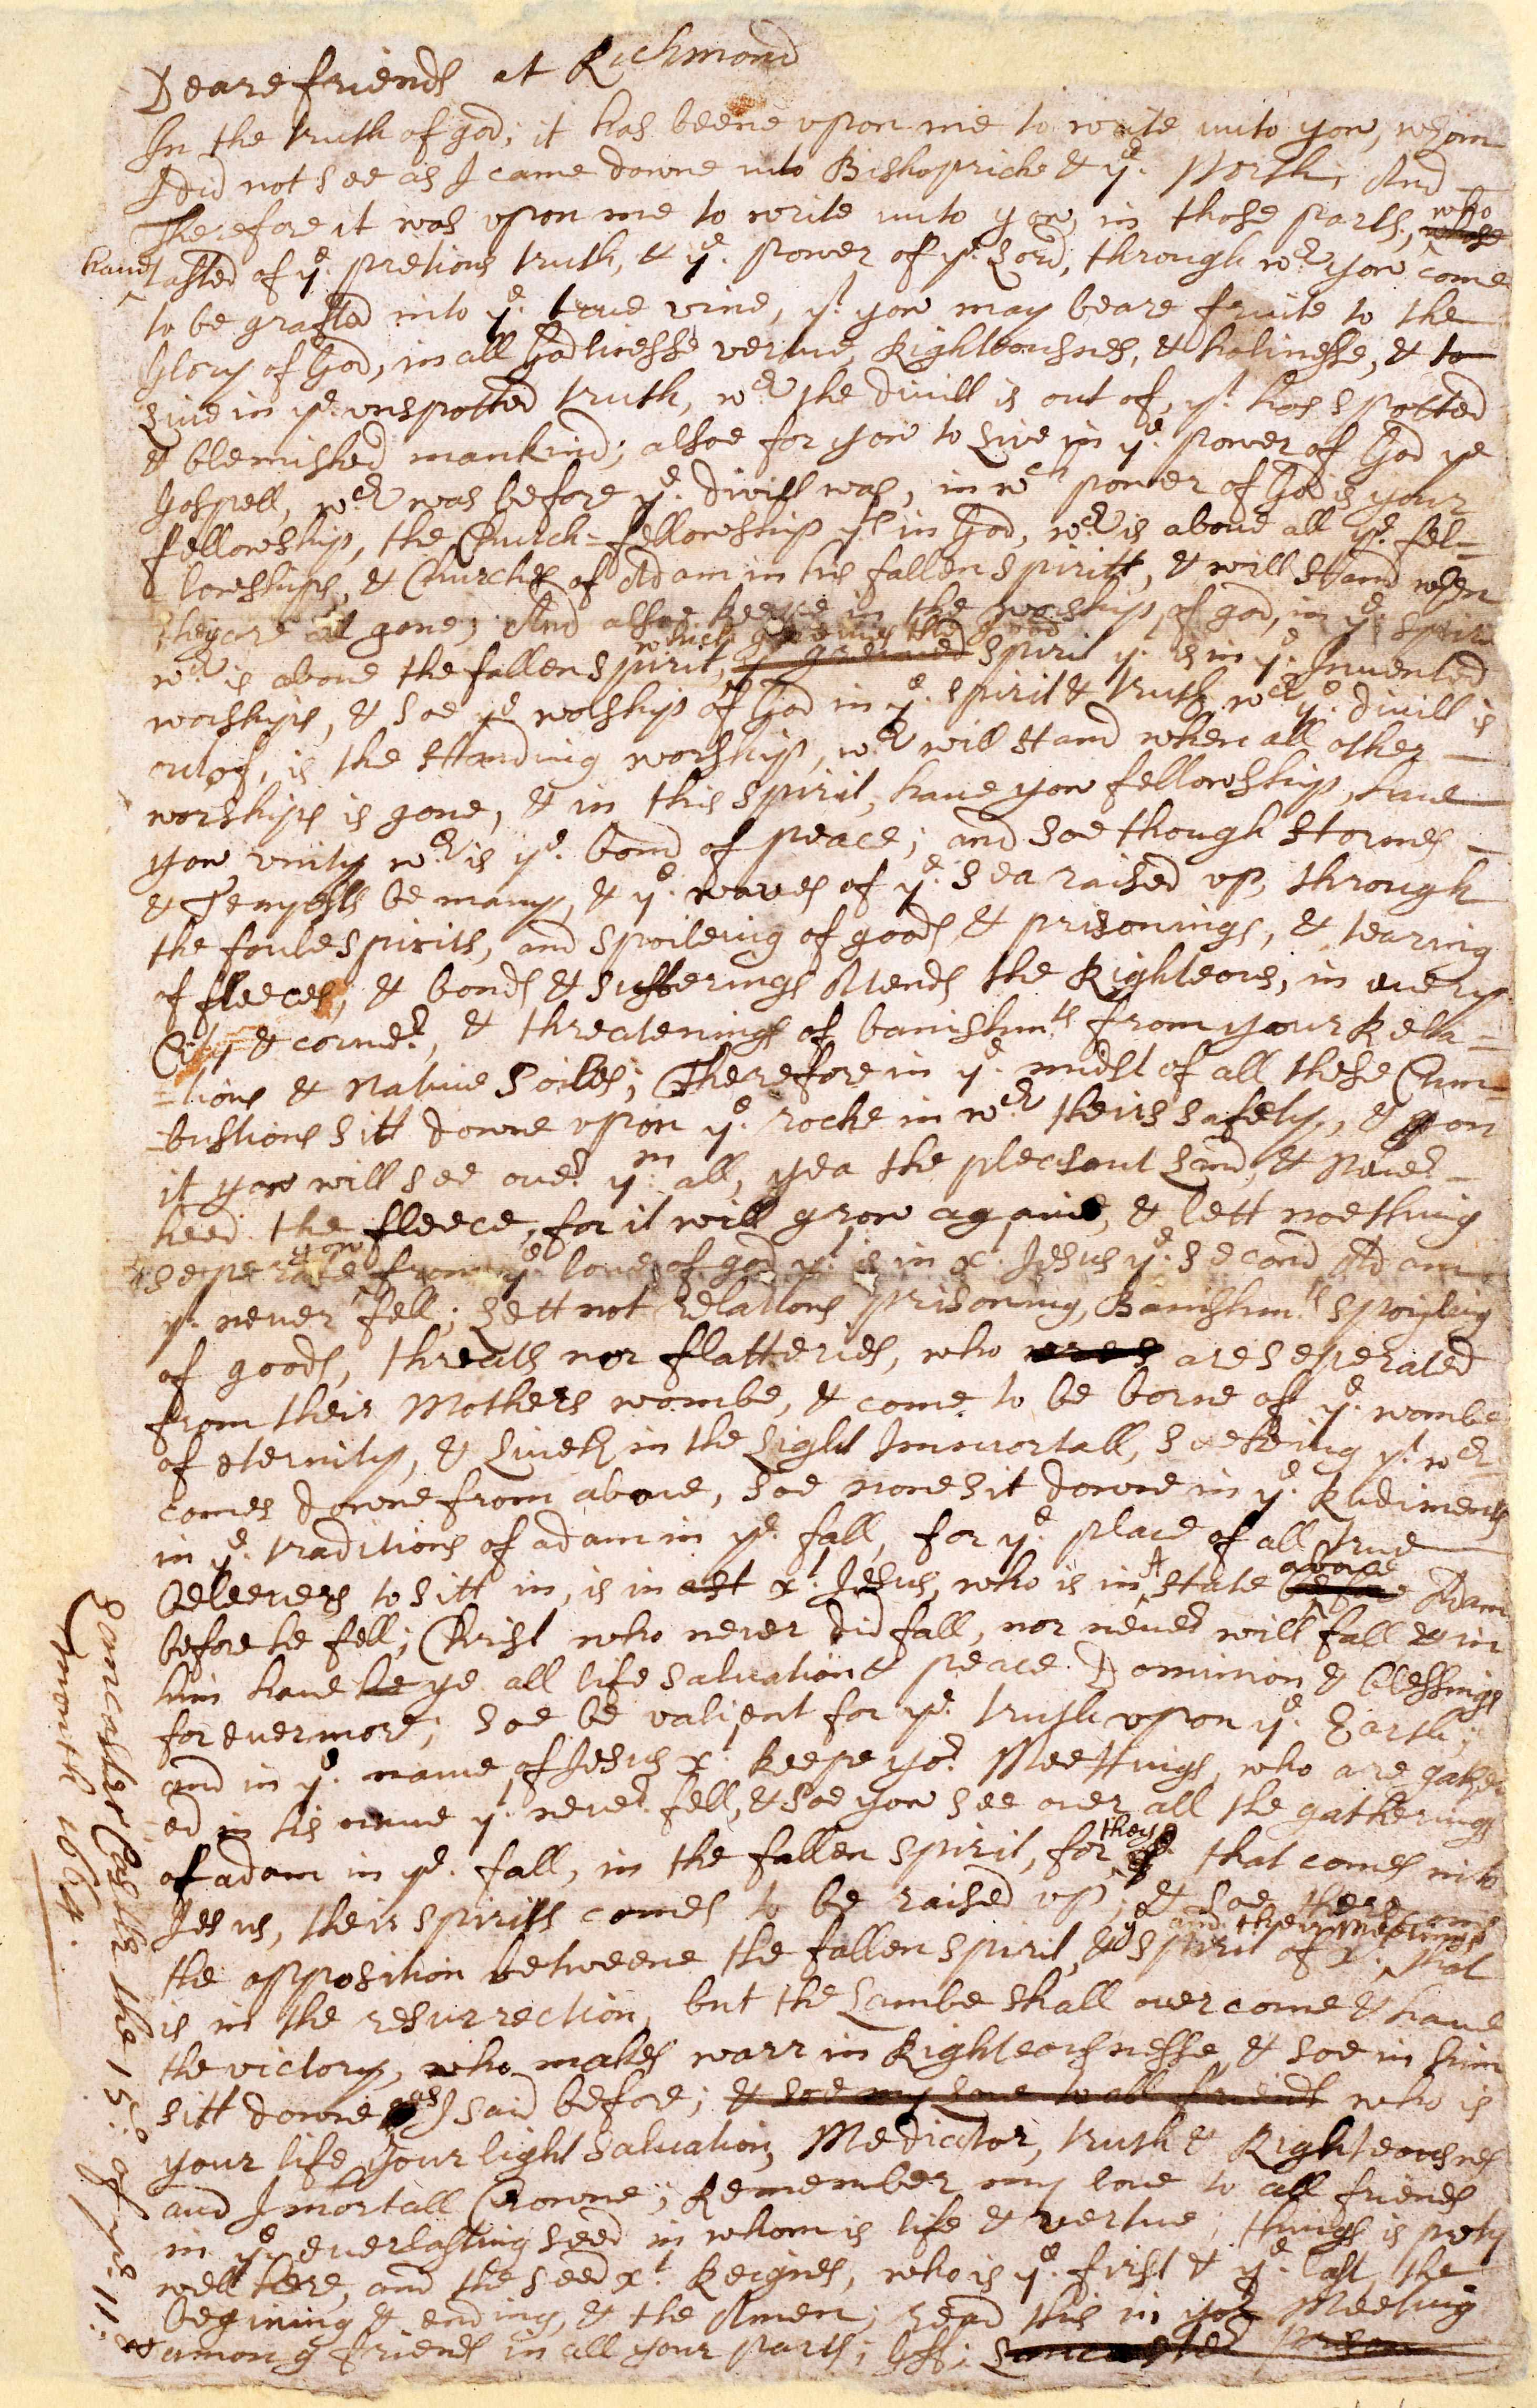 Deare friends at Richmond
In the truth of god; it has beene vpon me to write unto yow, whom
I did not see as I came downe into Bishopricke & ye. North, And
Therefore it was vpon me to write unto yow, in those parts, who whose
haue tasted of ye. pretious truth, & ye. power of ye. Lord, through wch yow come
to be grafted into ye. true vine, yt. yow may beare fruite to the
Glory of God, in all Godlinesse vertue, Righteousnes, & holinesse, & to
Liue in ye. unspotted truth, wch the diuill is out of, yt. has spotted
& blemished mankind; alsoe for yow to Liue in ye. power of God ye
Gospell, wch was before ye. divill was, in wch power of God is your
fellowship, the Church-fellowship yts in God, wch is aboue all ye. fel=
=lowships, & Churches of Adam in his fallen spiritt, & will stand when
they are all gone; And alsoe keepe in the worship of god, in ye. spirit
wch is aboue the fallen spirit, which greeves the good spirit yt. is in ye. Inuented
worships, & soe ye worship of God in ye. spirit & truth wch ye. diuill is
out of, is the standing worship, wch will stand when all other
worships is gone, & in this spirit, haue yow fellowship, haue
yow vnity wch is ye. bond of peace; and soe though stormes
& Tempests be many, & ye. waves of ye. Sea raised vp, through
the foule spirits, and spoileing of goods, & prisonings, & tearing
of fleeces, & bonds & sufferings Atends the Righteous, in euery
City & corner, & threatenings of banishmts from your Rela=
=tions & Natiue Soiles; Therefore in ye. midst of all these Cum=
=bustions sitt downe vpon ye. rocke in wch theirs safety, & on
it yow will see ouer ym. all, yea the pleasant Land, & Neuer
heed the fleece, for it will grow againe, & lett noething
seperate yow from ye. loue of god yt. is in xt. Jesus ye. second Adam
yt. never fell; Lett not relations prisoning, Banishmts spoyling
of goods, threats nor flatteries, who are seperated
from their Mothers wombe, & come to be borne of ye. wombe
of eternity, & Liueth in the Light Immortall, seekeing yt. wch
comes downe from aboue, soe none sit downe in ye. Rudiments
in ye. traditions of adam in ye. fall, for ye. place of all true
beleevers to sitt in, is in xt. Jesus, who is in A state aboue before Adam
before he fell; Christ who never did fall, nor neuer will fall & in
him haue he ye all life saluation & peace. Dominion & blessings
for euermore; soe be valient for ye. truth vpon ye. Earth;
and in ye. name of Jesus xt. keepe yor. Meettings, who are gather
ed in his name yt. neuer fell, & soe yow see over all the gatherings
of adam in ye. fall, in the fallen spirit, for they that comes into
Jesus, their spirits comes to be raised vp; & soe there comes
the opposition betweene the fallen spirit, & ye spirit of xt. and their meetings that
is in the resurrection, but the Lambe shall ouer come & haue
the victory, who makes warr in Righteousnesse & soe in him
sitt downe as I said before; & soe my loue to all friends who is
your life your light saluation, Mediator, truth & Righteousnes
and Imortall Crowne; Remember my loue to all friends
in ye. everlasting seed in whom is life & vertue; things is prety
well here, and the seed xt. Reignes, who is ye. first & ye. last, the
begining & ending, & the Amen; read this in yor Meeting
& among friends in all your parts; Gff; Lancaster prison
Lancaster Castle the 15th. of ye. 11:
month 1664.